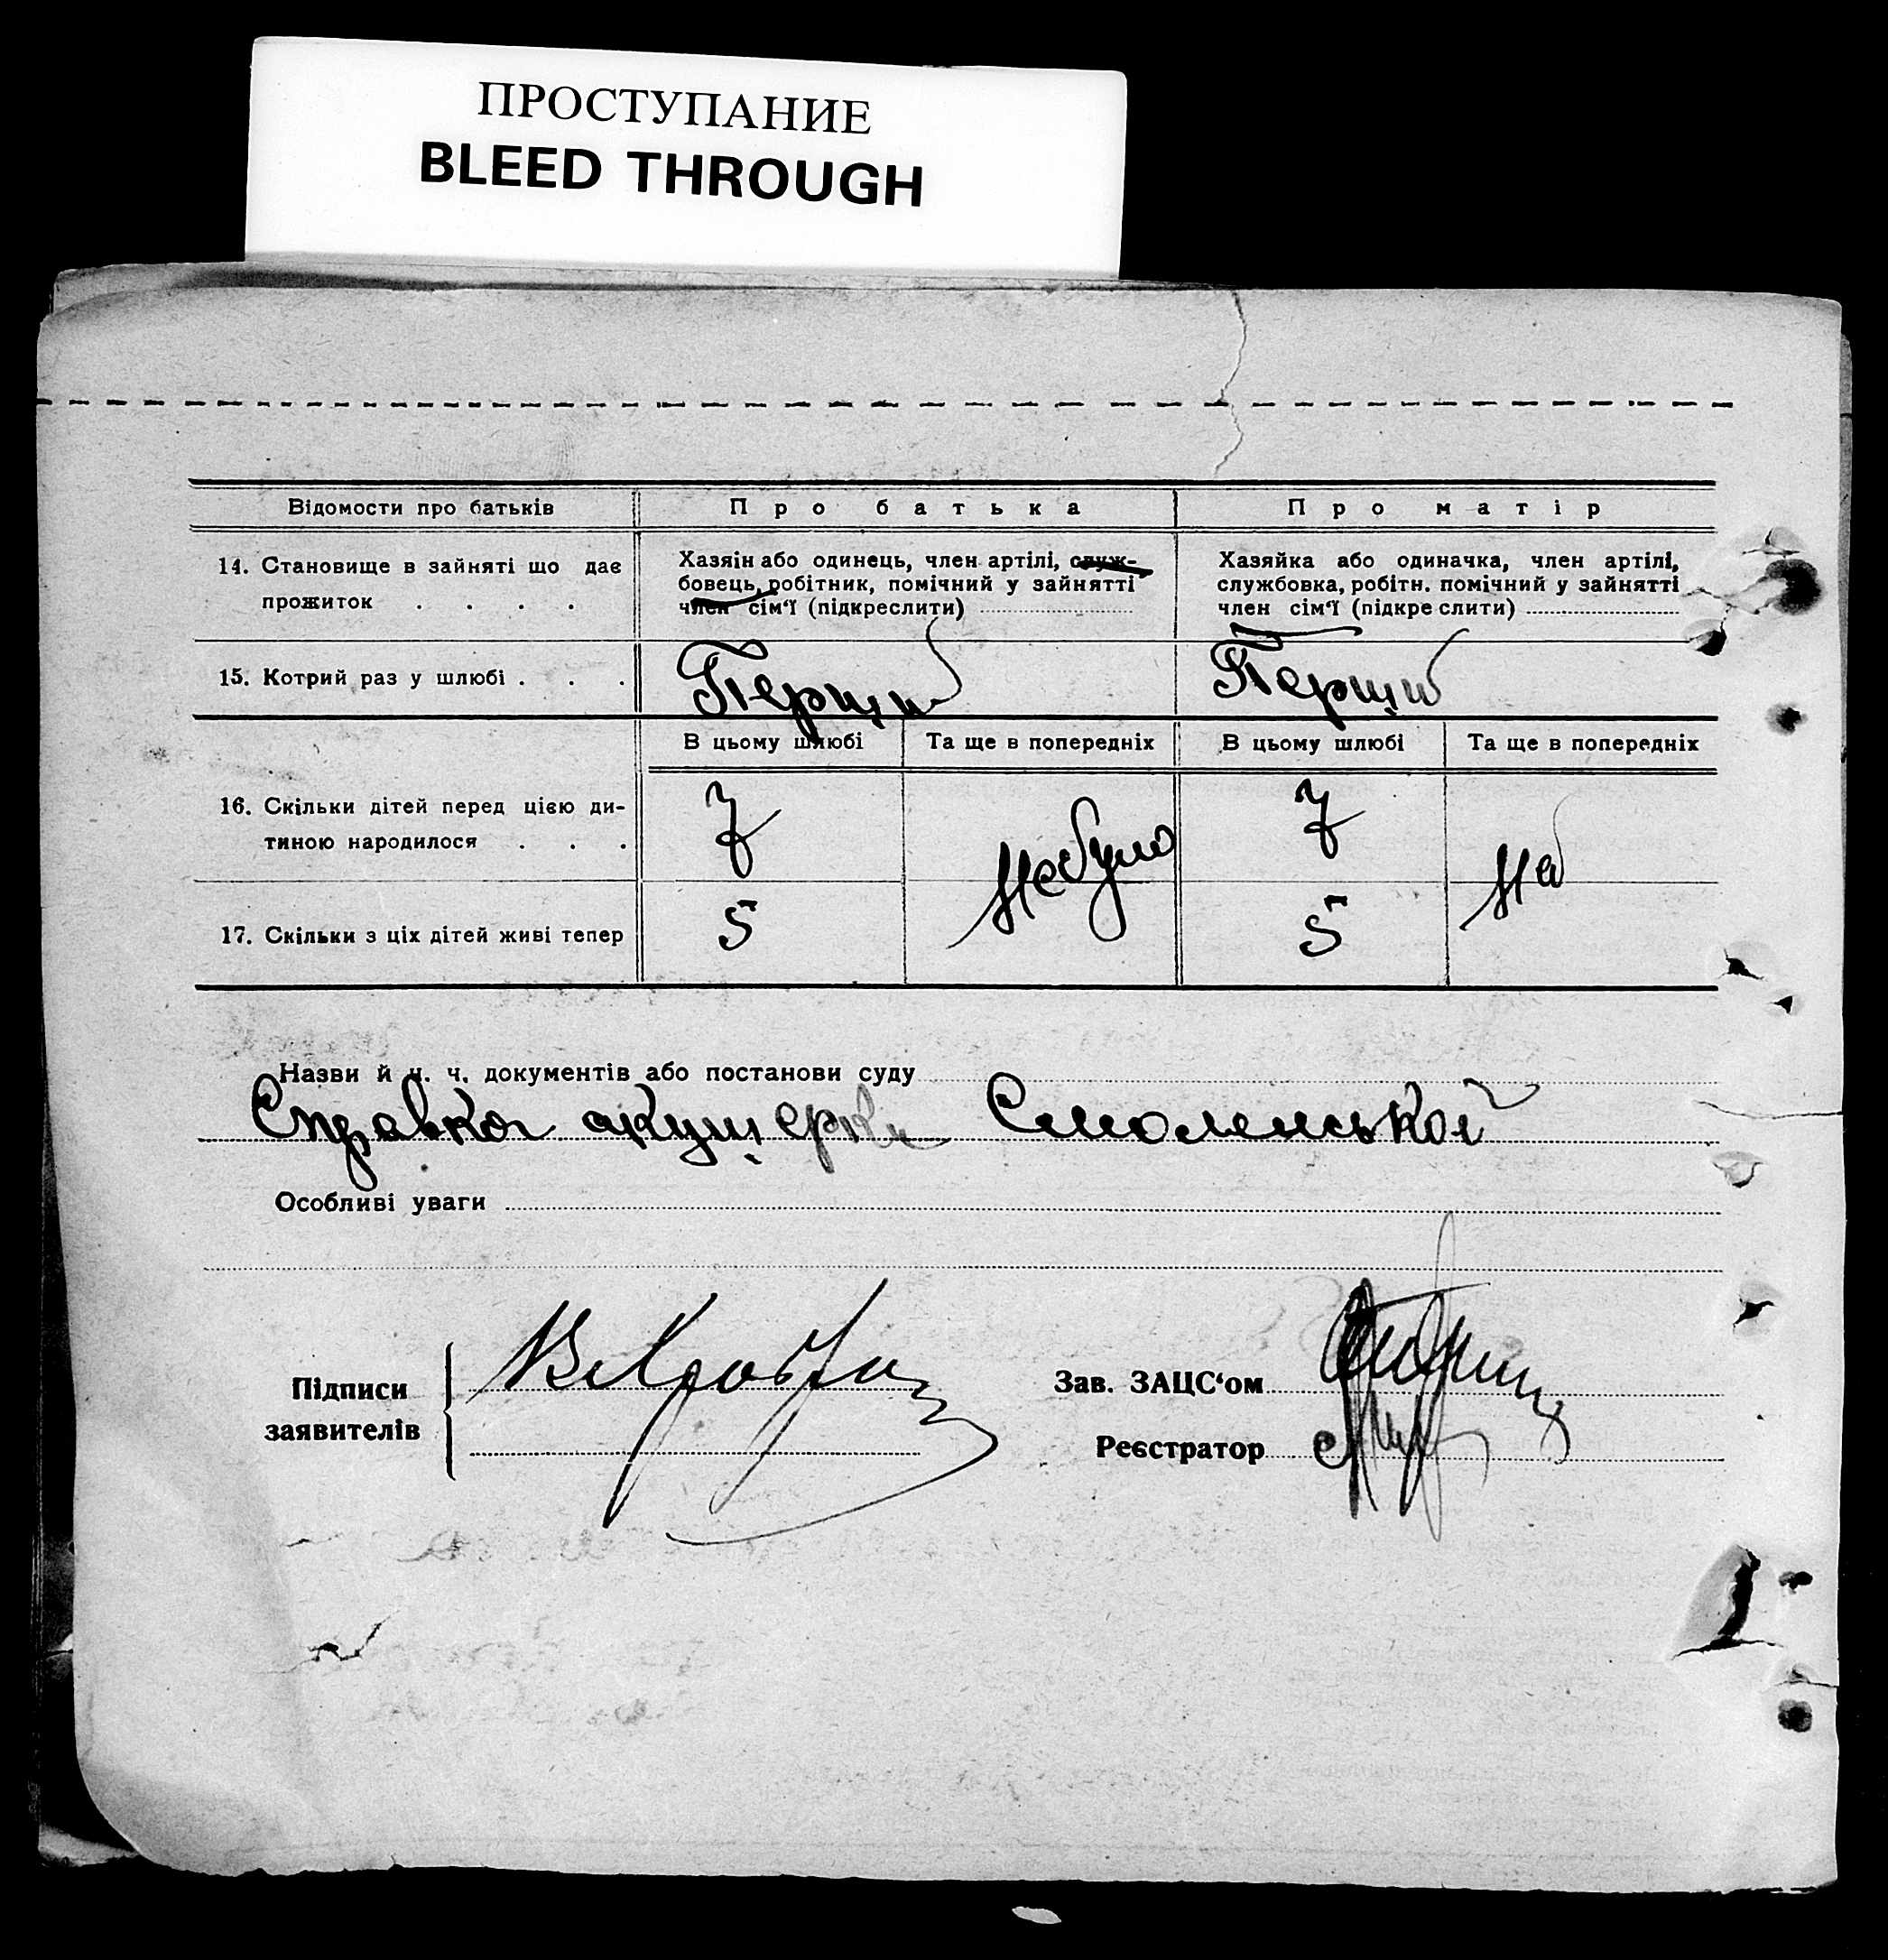 ПРОСТУПАНИЕ
BLEED THROUGH
Відомости про батьків
Про батька
Про матір
14. Становище в зайняті що дає
прожиток . . . .
Хазяїн або одинець, член артілі, служ-
бовець, робітник, помічний у зайнятті
член сім'ї (підкреслити)
Хазяйка або одиначка, член артілі,
службовка, робітн. помічний у зайнятті
член сім'ї (підкреслити)
15. Котрий раз у шлюбі . . .
Перший
Перший
В цьому шлюбі
Та ще в попередніх
В цьому шлюбі
Та ще в попередніх
16. Скільки дітей перед цією ди-
тиною народилося . . .
7
Не було
7
Не б
17. Скільки з ціх дітей живі тепер
5
5
Назви й ч. ч. документів або постанови суду
Справка акушерки Смоленської
Особливі уваги
Підписи
заявителів
Зав. ЗАЦС'ом
Реєстратор